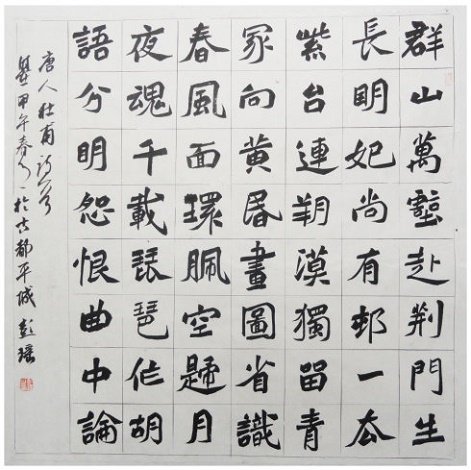 群山萬壑赴荆門生
長明妃尚有邨一去
紫台連朔漠獨留青
冢向黄昏畫圖省識
春風面環珮空歸月
夜魂千載琵琶作胡
語分明怨恨曲中論
唐人杜甫詩
甲午春於古都平城